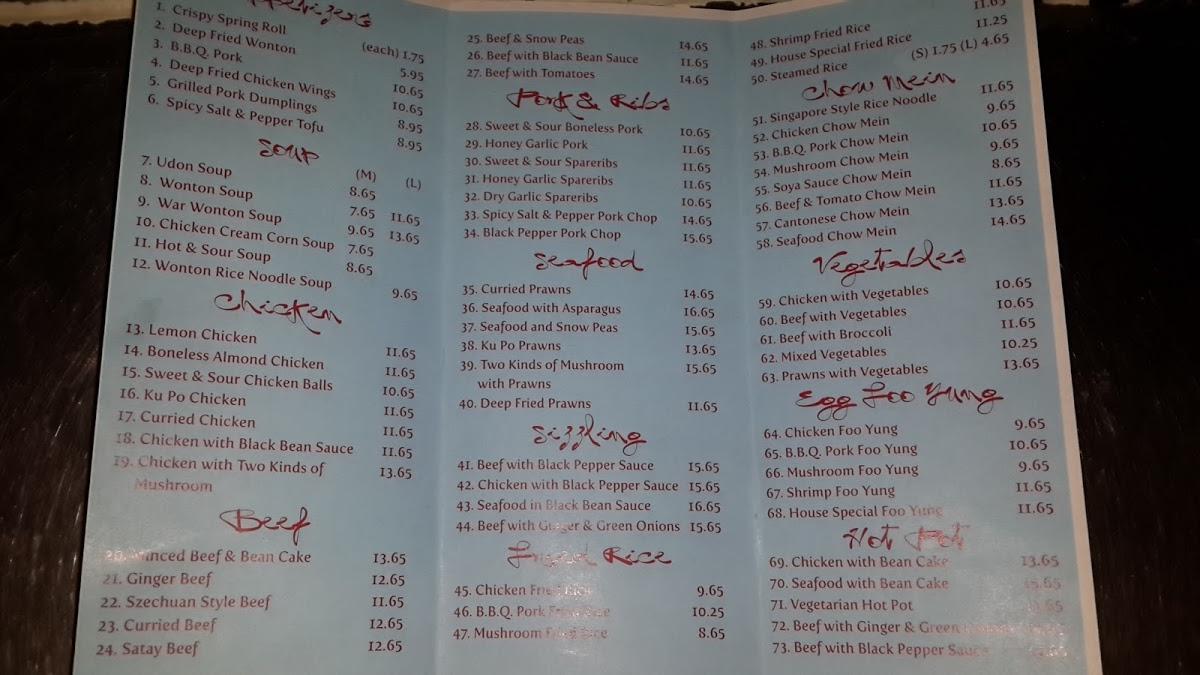 Appetizers
1. Crispy Spring Roll (each) 1.75
2. Deep Fried Wonton 5.95
3. B.B.Q. Pork 10.65
4. Deep Fried Chicken Wings 10.65
5. Grilled Pork Dumplings 8.95
6. Spicy Salt & Pepper Tofu 8.95
Soup
(M) (L)
7. Udon Soup 8.65
8. Wonton Soup 7.65 11.65
9. War Wonton Soup 9.65 13.65
10. Chicken Cream Corn Soup 7.65
11. Hot & Sour Soup 8.65
12. Wonton Rice Noodle Soup 9.65
Chicken
13. Lemon Chicken 11.65
14. Boneless Almond Chicken 11.65
15. Sweet & Sour Chicken Balls 10.65
16. Ku Po Chicken 11.65
17. Curried Chicken 11.65
18. Chicken with Black Bean Sauce 11.65
19. Chicken with Two Kinds of 13.65
Mushroom
Beef
20. Minced Beef & Bean Cake 13.65
21. Ginger Beef 12.65
22. Szechuan Style Beef 11.65
23. Curried Beef 12.65
24. Satay Beef 12.65
25. Beef & Snow Peas 14.65
26. Beef with Black Bean Sauce 11.65
27. Beef with Tomatoes 14.65
Pork & Ribs
28. Sweet & Sour Boneless Pork 10.65
29. Honey Garlic Pork 11.65
30. Sweet & Sour Spareribs 11.65
31. Honey Garlic Spareribs 11.65
32. Dry Garlic Spareribs 10.65
33. Spicy Salt & Pepper Pork Chop 14.65
34. Black Pepper Pork Chop 15.65
Seafood
35. Curried Prawns 14.65
36. Seafood with Asparagus 16.65
37. Seafood and Snow Peas 15.65
38. Ku Po Prawns 13.65
39. Two Kinds of Mushroom 15.65
with Prawns
40. Deep Fried Prawns 11.65
Sizzling
41. Beef with Black Pepper Sauce 15.65
42. Chicken with Black Pepper Sauce 15.65
43. Seafood in Black Bean Sauce 16.65
44. Beef with Ginger & Green Onions 15.65
Fried Rice
45. Chicken Fried Rice 9.65
46. B.B.Q. Pork Fried Rice 10.25
47. Mushroom Fried Rice 8.65
48. Shrimp Fried Rice 11.65
49. House Special Fried Rice 11.25
50. Steamed Rice (S) 1.75 (L) 4.65
Chow Mein
51. Singapore Style Rice Noodle 11.65
52. Chicken Chow Mein 9.65
53. B.B.Q. Pork Chow Mein 10.65
54. Mushroom Chow Mein 9.65
55. Soya Sauce Chow Mein 8.65
56. Beef & Tomato Chow Mein 11.65
57. Cantonese Chow Mein 13.65
58. Seafood Chow Mein 14.65
Vegetables
59. Chicken with Vegetables 10.65
60. Beef with Vegetables 10.65
61. Beef with Broccoli 11.65
62. Mixed Vegetables 10.25
63. Prawns with Vegetables 13.65
Egg Foo Yung
64. Chicken Foo Yung 9.65
65. B.B.Q. Pork Foo Yung 10.65
66. Mushroom Foo Yung 9.65
67. Shrimp Foo Yung 11.65
68. House Special Foo Yung 11.65
Hot Pot
69. Chicken with Bean Cake 13.65
70. Seafood with Bean Cake
71. Vegetarian Hot Pot
72. Beef with Ginger & Green
73. Beef with Black Pepper Sauce